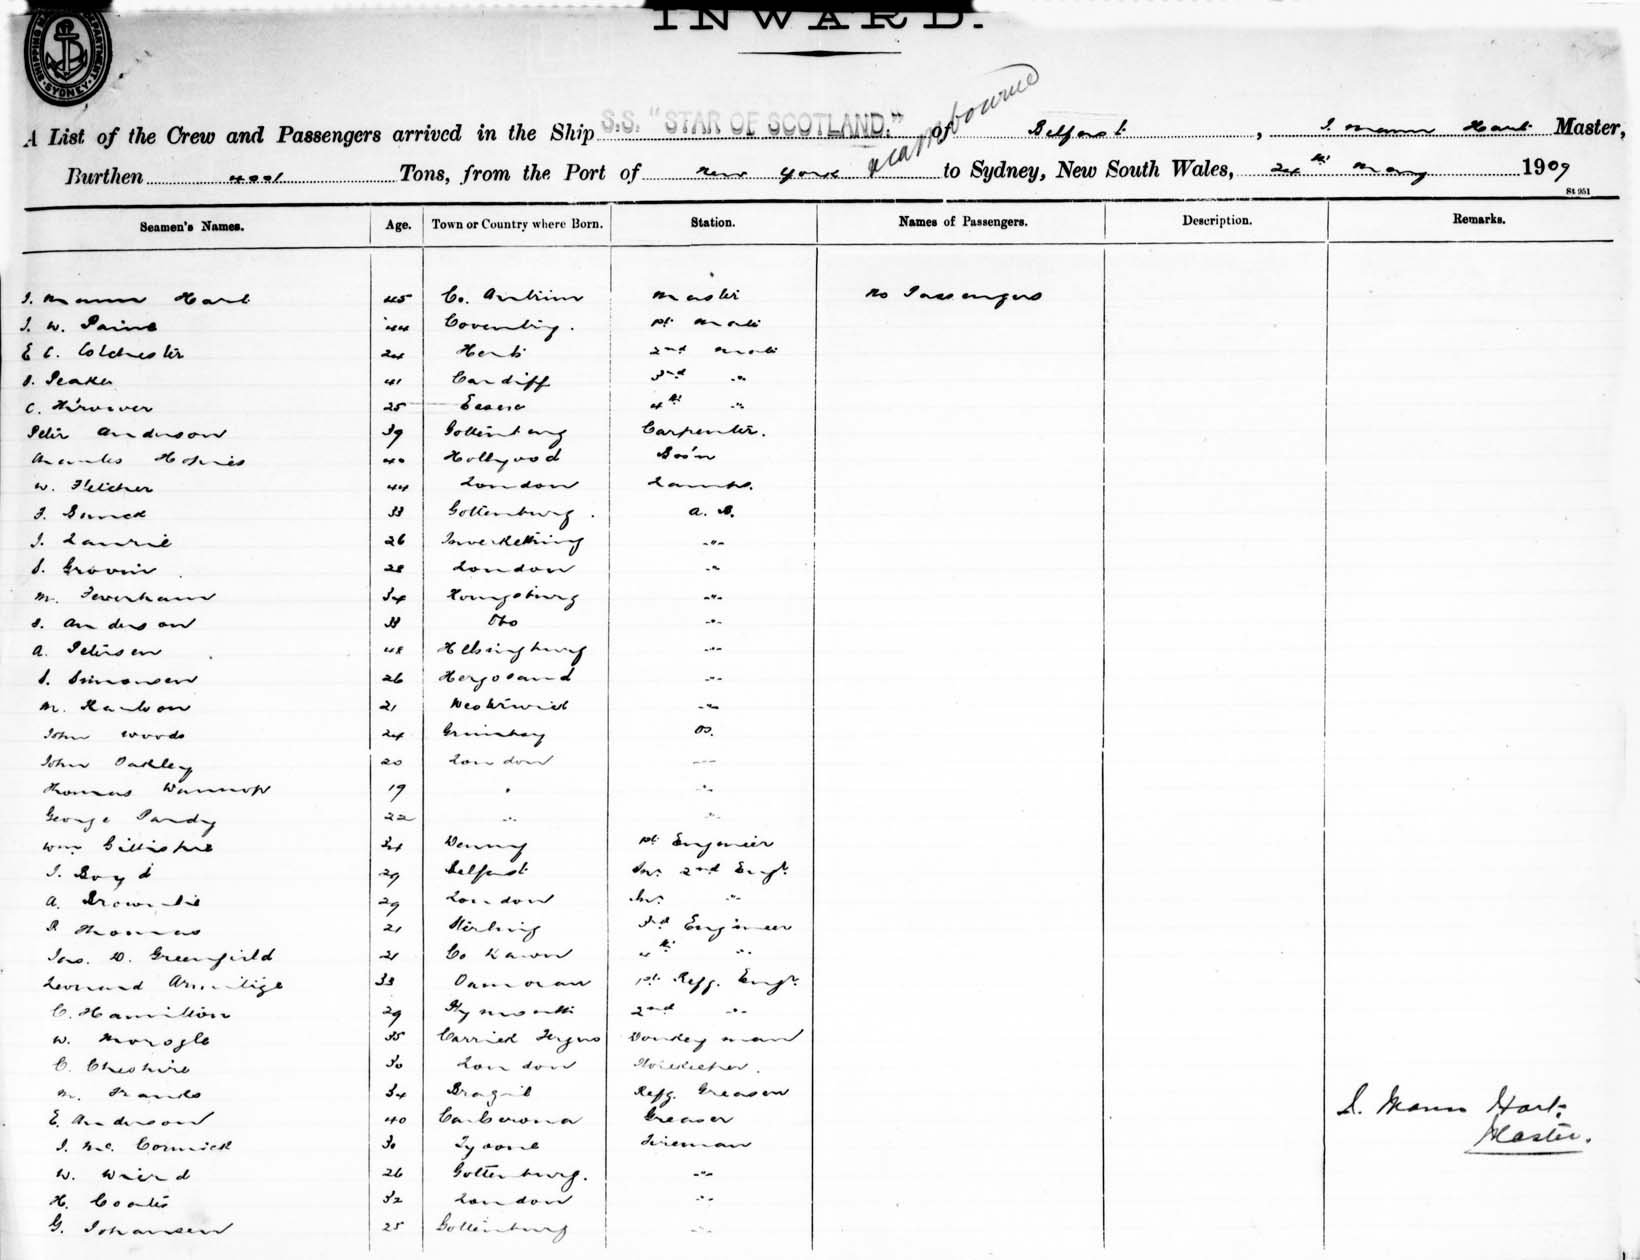 INWARD.
SYDNEY
S.S. "STAR OF SCOTLAND."
A List of the Crew and Passengers arrived in the Ship of Belfast, J. Mann Hart Master,
Burthen 4001 Tons, from the Port of New York via Melbourne to Sydney, New South Wales, 24th May 1909
St 951
Seamen's Names. Age. Town or Country where Born. Station. Names of Passengers. Description. Remarks.
J. Mann Hart 45 Co. Antrim Master No Passengers
J. W. Paine 44 Coventry. 1st Mate
E C. Colchester 24 Herts 2nd Mate
41 Cardiff 3rd "
C. 25 Essex 4th "
Peter Anderson 39 Gottenburg Carpenter.
Holmes 40 Hollywood Bos'n
W. Fletcher 44 London Lamps.
33 Gottenburg. A. B.
J. Laurie 26 Inverkeithing "
28 London "
M. 34 "
S. Anderson 33 Do "
A. Petersen 48 Helsingburg "
S. Simonsen 26 "
M. Karlson 21 "
John Woods 24 Grimsby OS.
John Oakley 20 London "
Thomas 19 " "
George Pardy 22 " "
Wm Gillespie 34 Denny 1st Engineer
J. Boyd 29 Belfast Snr 2nd Engr
A. Brownlie 29 London Jnr "
P. Thomas 21 Stirling 3rd Engineer
Jas. D. Greenfield 21 Co Down 4th "
Leonard Armitige 33 1st Refg. Engr
C. Hamilton 29 Plymouth 2nd "
W. 35 Carrick Fergus Donkey man
C. Cheshire 30 London Storekeeper.
M. 34 Brazil Refg. Greaser
E. Anderson 40 Greaser
J. Mc. Cormick 30 Tyrone Fireman
W. 26 Gottenburg. "
H. Coates 32 London "
G. Johansen 25 Gottenburg "
J. Mann Hart.
Master.